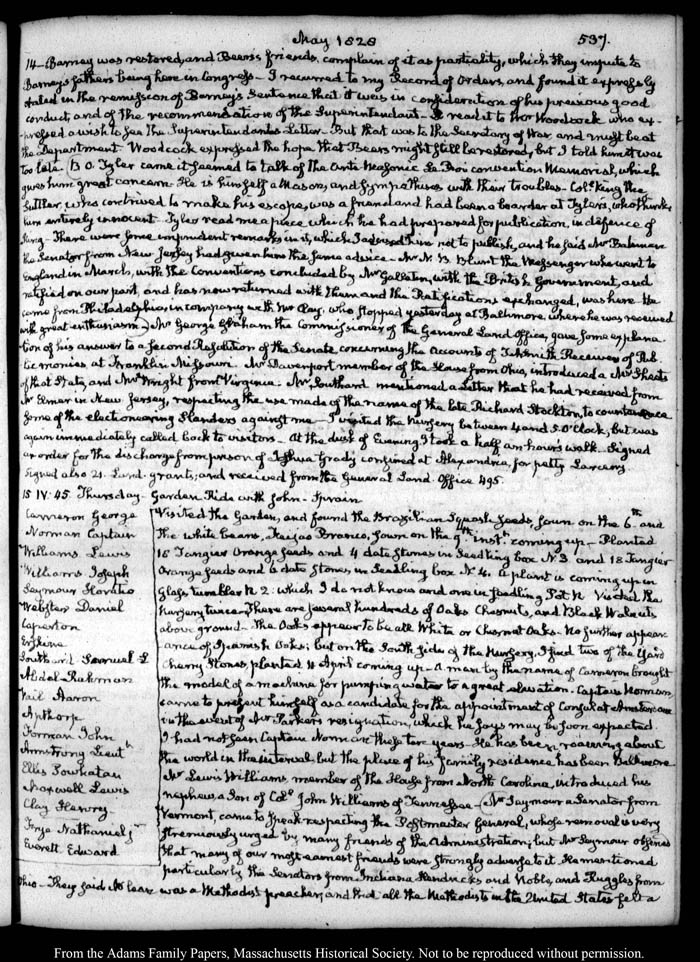 May 1828
537.
14 – Barney was restored, and Beers's friends, complain of it as partiality, which they impute to
Barney's fathers being here in Congress – I recurred to my Record of Orders, and found it expressly
stated in the remission of Barney's Sentence that it was in consideration of his previous good
conduct, and of the recommendation of the Superintendant – I read it to Mr Woodcock who ex-
pressed a wish to see the Superintendant's Letter – But that was to the Secretary of War and must be at
the Department. Woodcock expressed the hope that Beers might still be restored, but I told him it was
too late. B O. Tyler came it seemed to talk of the Anti Masonic Le Roy convention Memorial, which
gives him great concern. He is himself a Mason, and sympathises with their troubles – Col. King the
Suttler, who contrived to make his escape, was a friend and had been a boarder at Tyler's, who thinks
him entirely innocent. Tyler read me a piece which he had prepared for publication, in defence of
King – There were some imprudent remarks in it, which I advised him not to publish, and he said Mr Bateman
the Senator from New Jersey had given him the same advice – Mr N. B. Blunt the Messenger who went to
England in March, with the Conventions concluded by Mr Gallatin, with the British Government, and
ratified on our part, and has now returned with them and the Ratifications exchanged, was here. He
came from Philadelphia in company with Mr Clay, who stopped yesterday at Baltimore where he was received
with great enthusiasm. Mr George Graham the Commissioner of the General Land Office, gave some explana-
tion of his answer to a second Resolution of the Senate concerning the accounts of T. A. Smith Receiver of Pub-
lic monies at Franklin Missouri. Mr Davenport member of the House from Ohio, introduced a Mr Sheets
of that State, and Mr Wright from Virginia. Mr Southard mentioned a Letter that he had received from
Mr Elmer in New Jersey, respecting the use made of the name of the late Richard Stockton, to countenance
some of the electioneering slanders against me – I visited the nursery between 4 and 5 O'Clock, but was
again immediately called back to visitors – At the dusk of Evening I took a half an hour's walk. Signed
an order for the discharge from prison of Joshua Grady confined at Alexandria, for petty Larceny.
Signed also 21. Land-grants, and received from the General Land Office 495.
15 IV:45. Thursday – Garden Ride with John – Sprain
Cameron George
Norman Captain
Williams Lewis
Williams Joseph
Seymour Horatio
Webster Daniel
Caperton
Erskine
Southard Samuel L
Abdal Rahman
Vail Aaron
Apthorp
Forman John
Armstrong Lieut
Ellis Powhatan
Maxwell Lewis
Clay Henry
Frye Nathaniel jr
Everett Edward
Visited the Garden, and found the Brazilian Squash seeds, sown on the 6th and
the white beans, Feijao Branco, sown on the 9th inst. coming up – Planted
18 Tangier Orange seeds and 4 date stones in seedling box N 3 and 18 Tangier
Orange seeds and 6 date stones, in seedling box N. 4. A plant is coming up in
Glass tumbler N 2: which I do not know and one in seedling Pot N Visited the
Nursery twice. There are several hundreds of Oaks Chesnuts, and Black Walnuts
above ground – The Oaks appear to be all White or Chesnut Oaks. No further appear-
ance of Spanish Oaks; but on the South side of the Nursery, I find two of the Yard
Cherry Stones, planted 4 April coming up – A man by the name of Cameron brought
the model of a machine for pumping water to a great elevation. Captain Norman
came to present himself as a candidate for the appointment of Consul at Amsterdam
in the event of Mr Parker's resignation, which he says may be soon expected
I had not seen Captain Norman these ten years. He has been roaming about
the world in the interval – but the place of his family residence, has been Baltimore
Mr Lewis Williams, member of the House from North Carolina, introduced his
nephew, a son of Colo. John Williams of Tennessee – Mr Seymour a Senator from
Vermont, came to speak respecting the Postmaster General, whose removal is very
strenuously urged by many friends of the Administration, but Mr Seymour observes
that many of our most earnest friends were strongly adverse to it. He mentioned
particularly the Senators from Indiana Hendricks and Noble, and Ruggles from
Ohio – They said McLean was a Methodist preacher, and that all the Methodists in the United States felt a
From the Adams Family Papers, Massachusetts Historical Society. Not to be reproduced without permission.